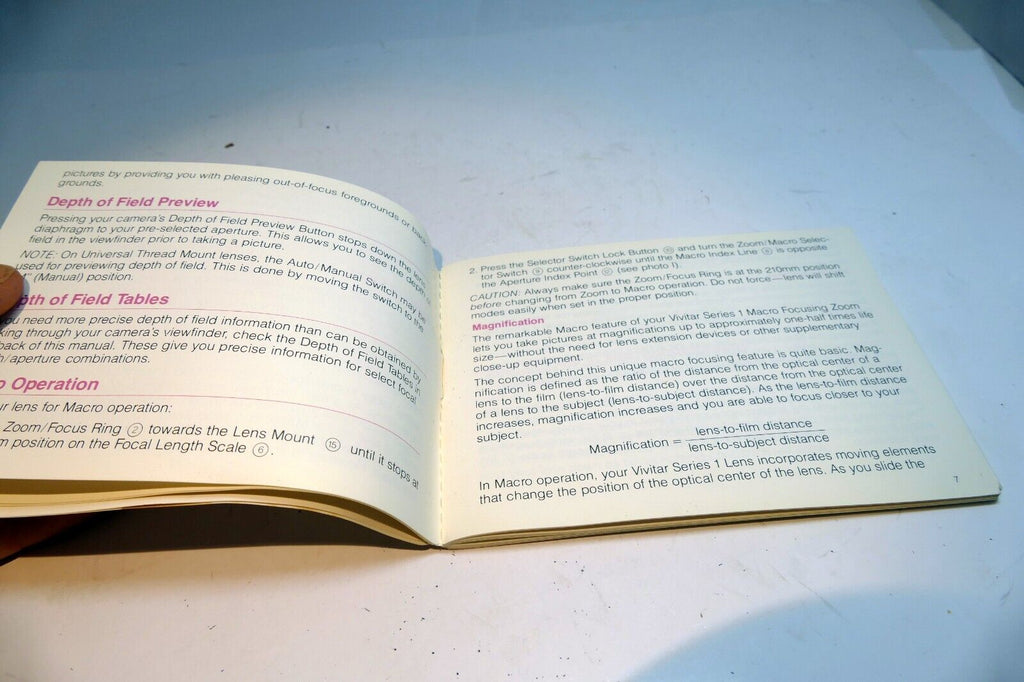 pictures by providing you with pleasing out-of-focus foregrounds or back-
grounds.
Depth of Field Preview
Pressing your camera's Depth of Field Preview Button stops down the lens
diaphragm to your pre-selected aperture. This allows you to see the depth of
field in the viewfinder prior to taking a picture.
NOTE: On Universal Thread Mount lenses, the Auto/Manual Switch may be
used for previewing depth of field. This is done by moving the switch to the
(Manual) position.
pth of Field Tables
ou need more precise depth of field information than can be obtained by
king through your camera's viewfinder, check the Depth of Field Tables in
back of this manual. These give you precise information for select focal
h/aperture combinations.
o Operation
ur lens for Macro operation:
Zoom/Focus Ring ② towards the Lens Mount ⑮ until it stops at
m position on the Focal Length Scale ⑥.
2. Press the Selector Switch Lock Button and turn the Zoom/Macro Selec-
tor Switch counter-clockwise until the Macro Index Line is opposite
the Aperture Index Point (see photo I).
CAUTION: Always make sure the Zoom/Focus Ring is at the 210mm position
before changing from Zoom to Macro operation. Do not force—lens will shift
modes easily when set in the proper position.
Magnification
The remarkable Macro feature of your Vivitar Series 1 Macro Focusing Zoom
lets you take pictures at magnifications up to approximately one-half times life
size—without the need for lens extension devices or other supplementary
close-up equipment.
The concept behind this unique macro focusing feature is quite basic. Mag-
nification is defined as the ratio of the distance from the optical center of a
lens to the film (lens-to-film distance) over the distance from the optical center
of a lens to the subject (lens-to-subject distance). As the lens-to-film distance
increases, magnification increases and you are able to focus closer to your
subject.
Magnification = lens-to-film distance
lens-to-subject distance
In Macro operation, your Vivitar Series 1 Lens incorporates moving elements
that change the position of the optical center of the lens. As you slide the
7